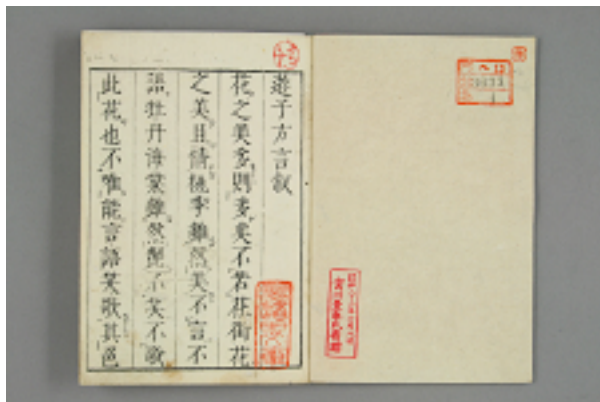 遊子方言叙
花之美多則多矣不若花街花
之美且情桃李雖然美不言不
語牡丹海棠雖然麗不笑不歌
此花也不唯能言語笑歌其色